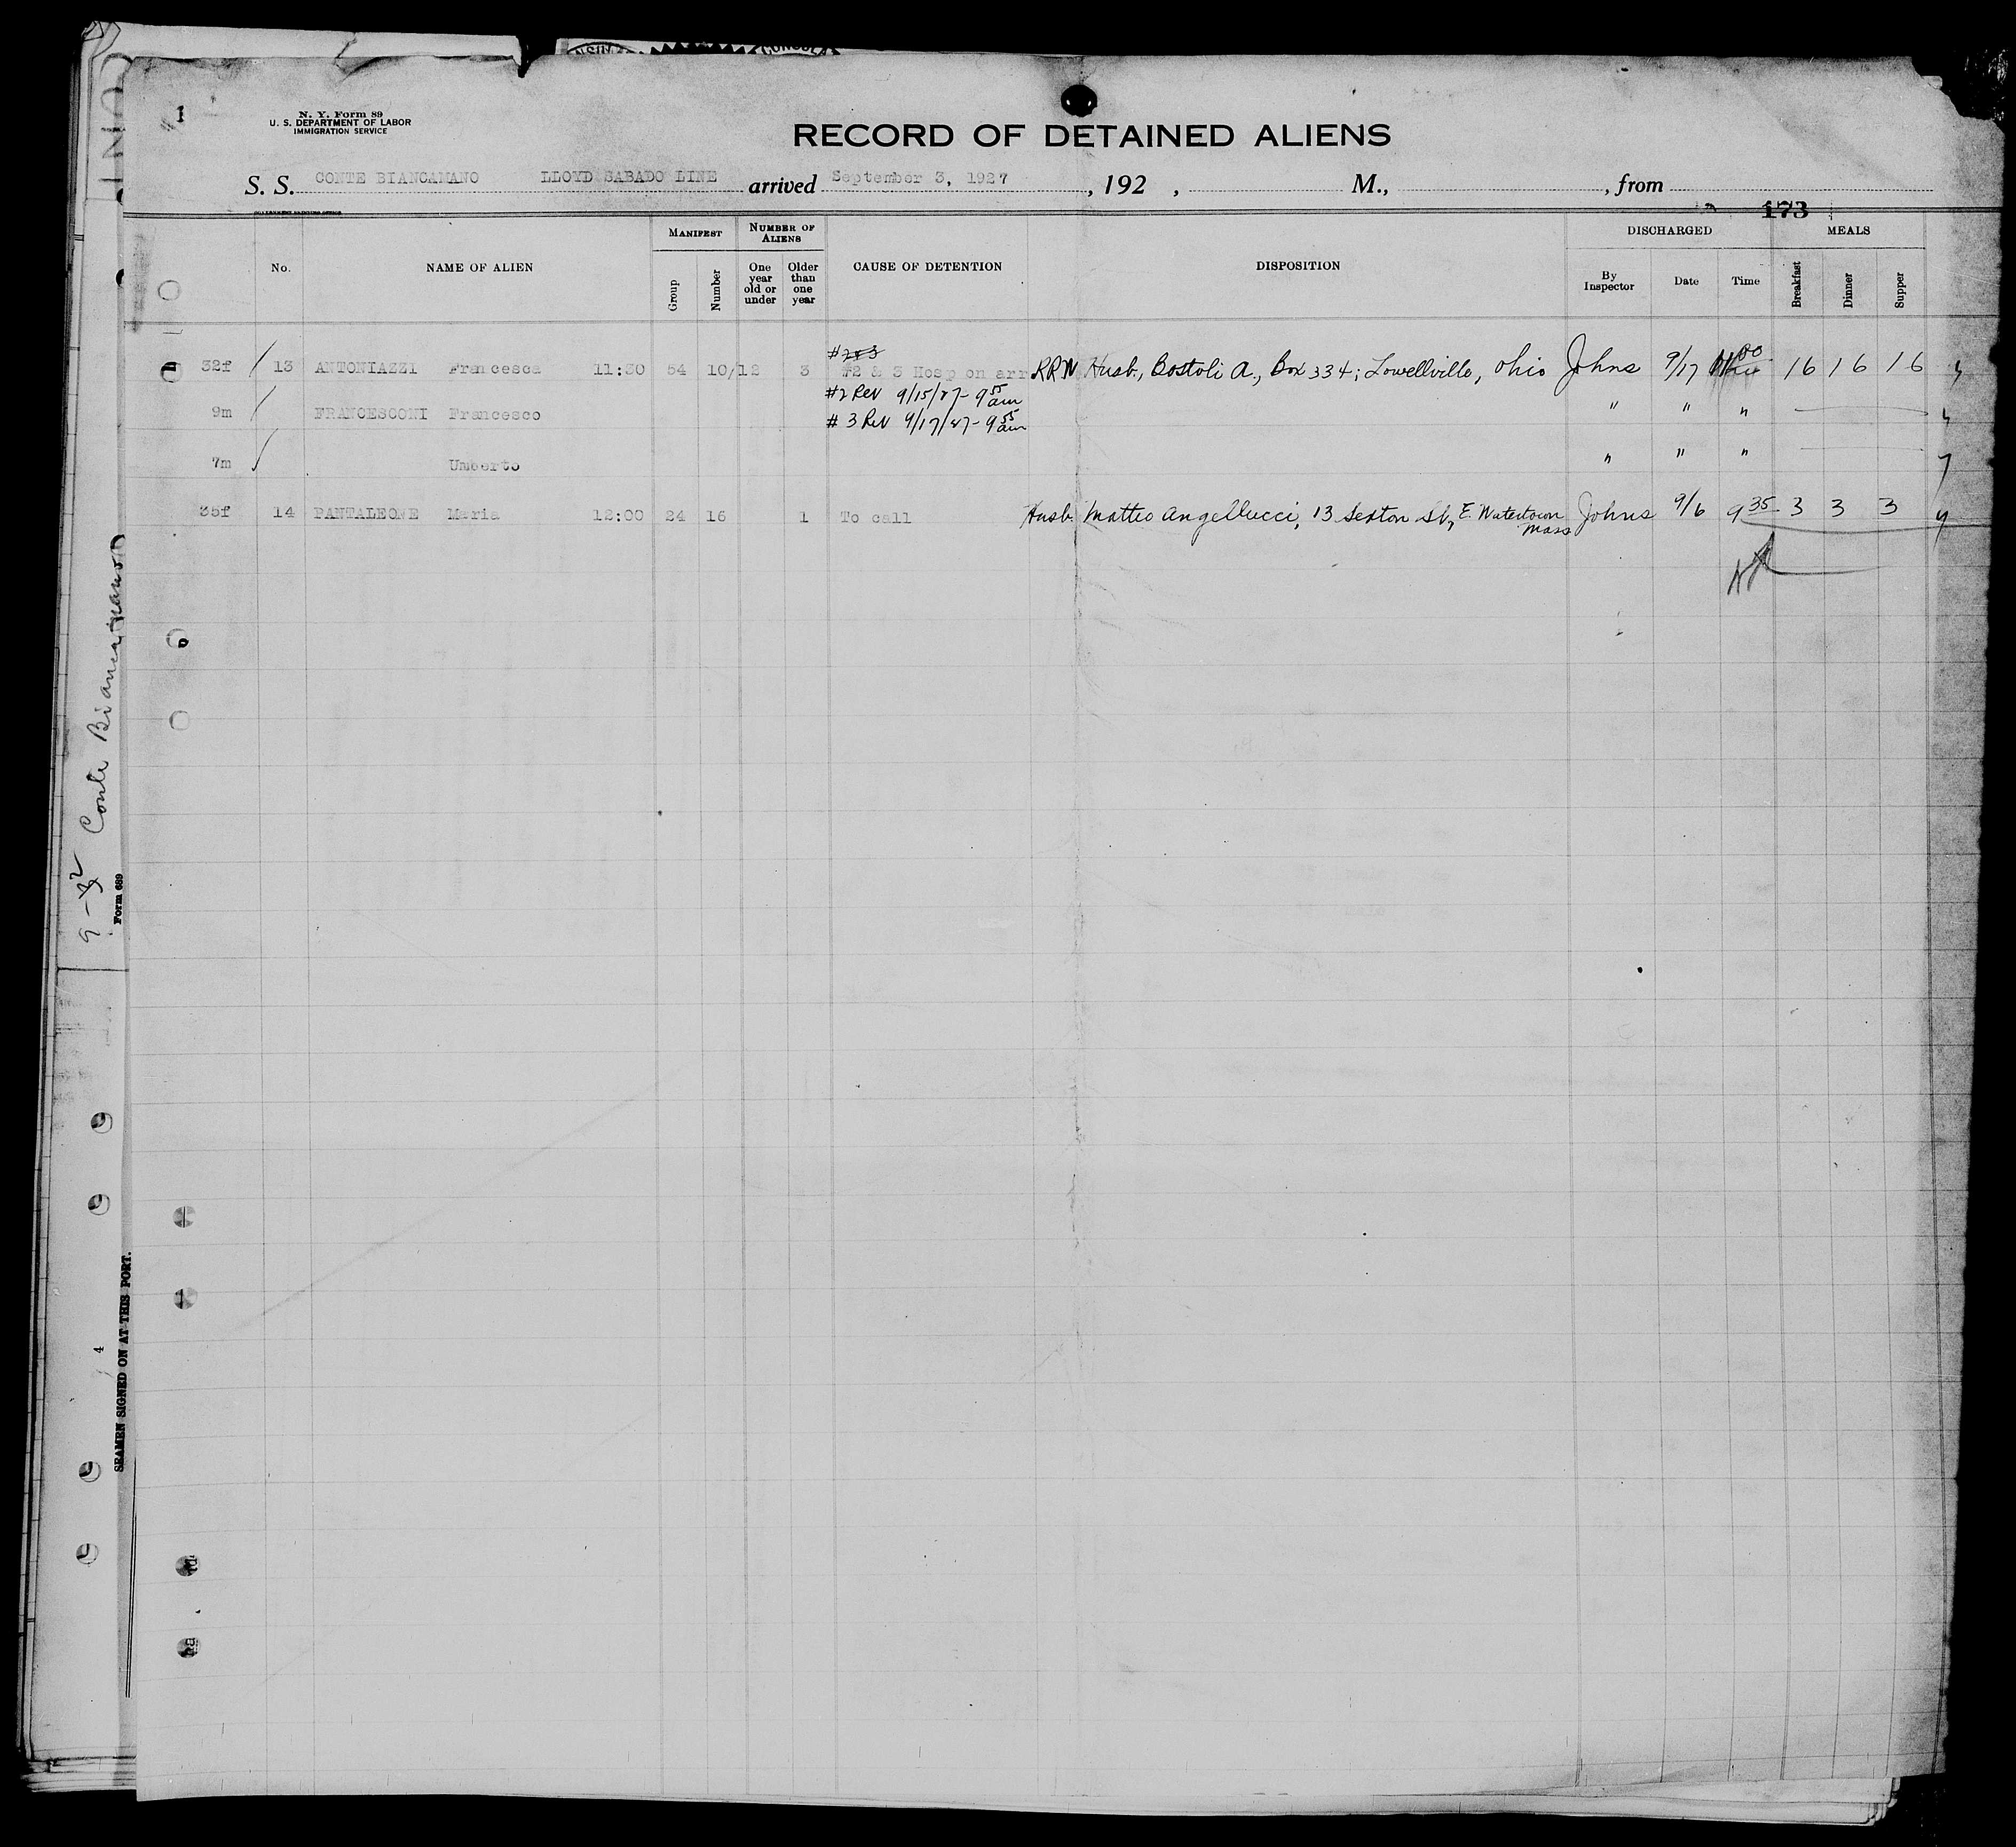 1
N. Y. Form 89
U. S. DEPARTMENT OF LABOR
IMMIGRATION SERVICE
RECORD OF DETAINED ALIENS
S. S. CONTE BIANCAMANO LLOYD SABADO LINE arrived September 3, 1927, 192 , M., , from
173
No. NAME OF ALIEN MANIFEST Group Number NUMBER OF ALIENS One year old or under Older than one year CAUSE OF DETENTION DISPOSITION DISCHARGED By Inspector Date Time MEALS Breakfast Dinner Supper
#2&3
32f 13 ANTONIAZZI Francesca 11:30 54 10/12 3 #2 & 3 Hosp on arr RRN Husb, Bostoli A., Box 334; Lowellville, Ohio Johns 9/17 16 16 16
#2 Rev 9/15/27 - 9 55 am
9m FRANCESCONI Francesco " " "
# 3 Rev 9/17/27 - 9 55 am
7m Umberto " " "
35f 14 PANTALEONE Maria 12:00 24 16 1 To call Husb. Matteo Angellucci, 13 Sexton St, E. Watertown Mass Johns 9/6 9 35 3 3 3
Conte Biancamano
Form 689
4
SEAMEN SIGNED ON AT THIS PORT.